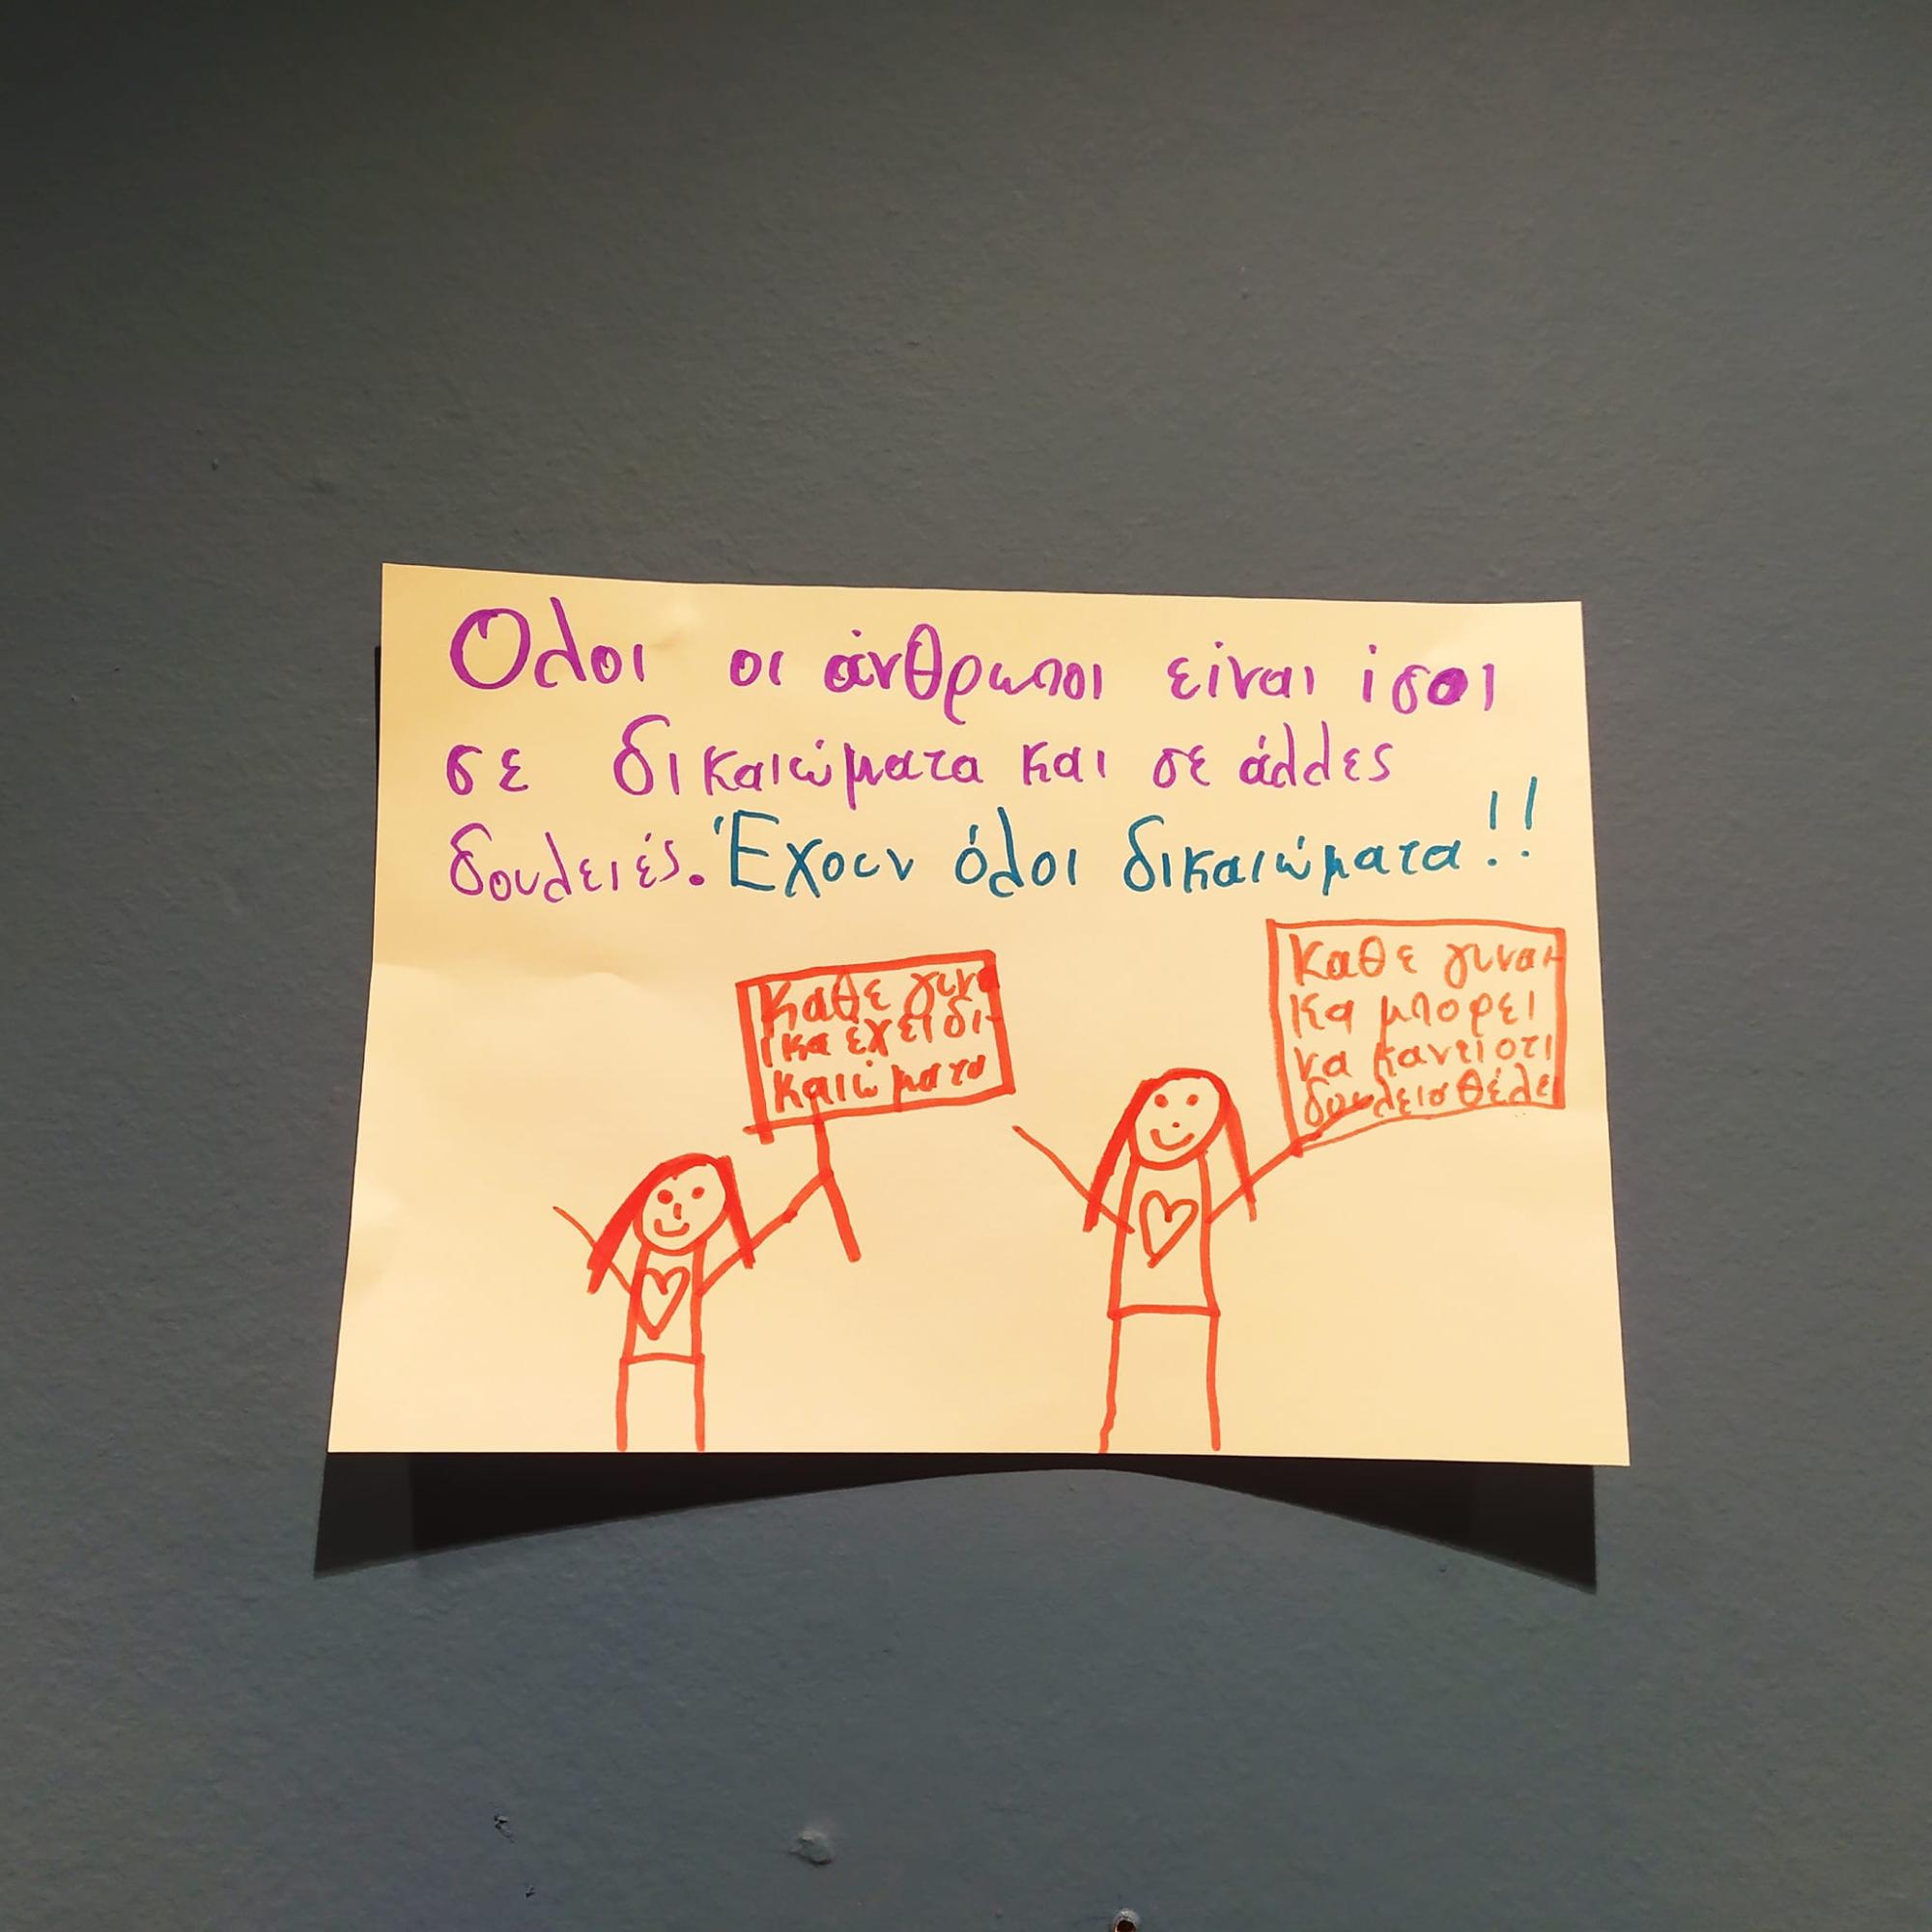 Ολοι οι άνθρωποι είναι ίσοι
σε δικαιώματα και σε άλλες
δουλειές. Έχουν όλοι δικαιώματα!!
Καθε γυνα
ικα έχει δι-
καιώματα
Καθε γυναι-
κα μπορει
να κανει οτι
δουλεια θέλει